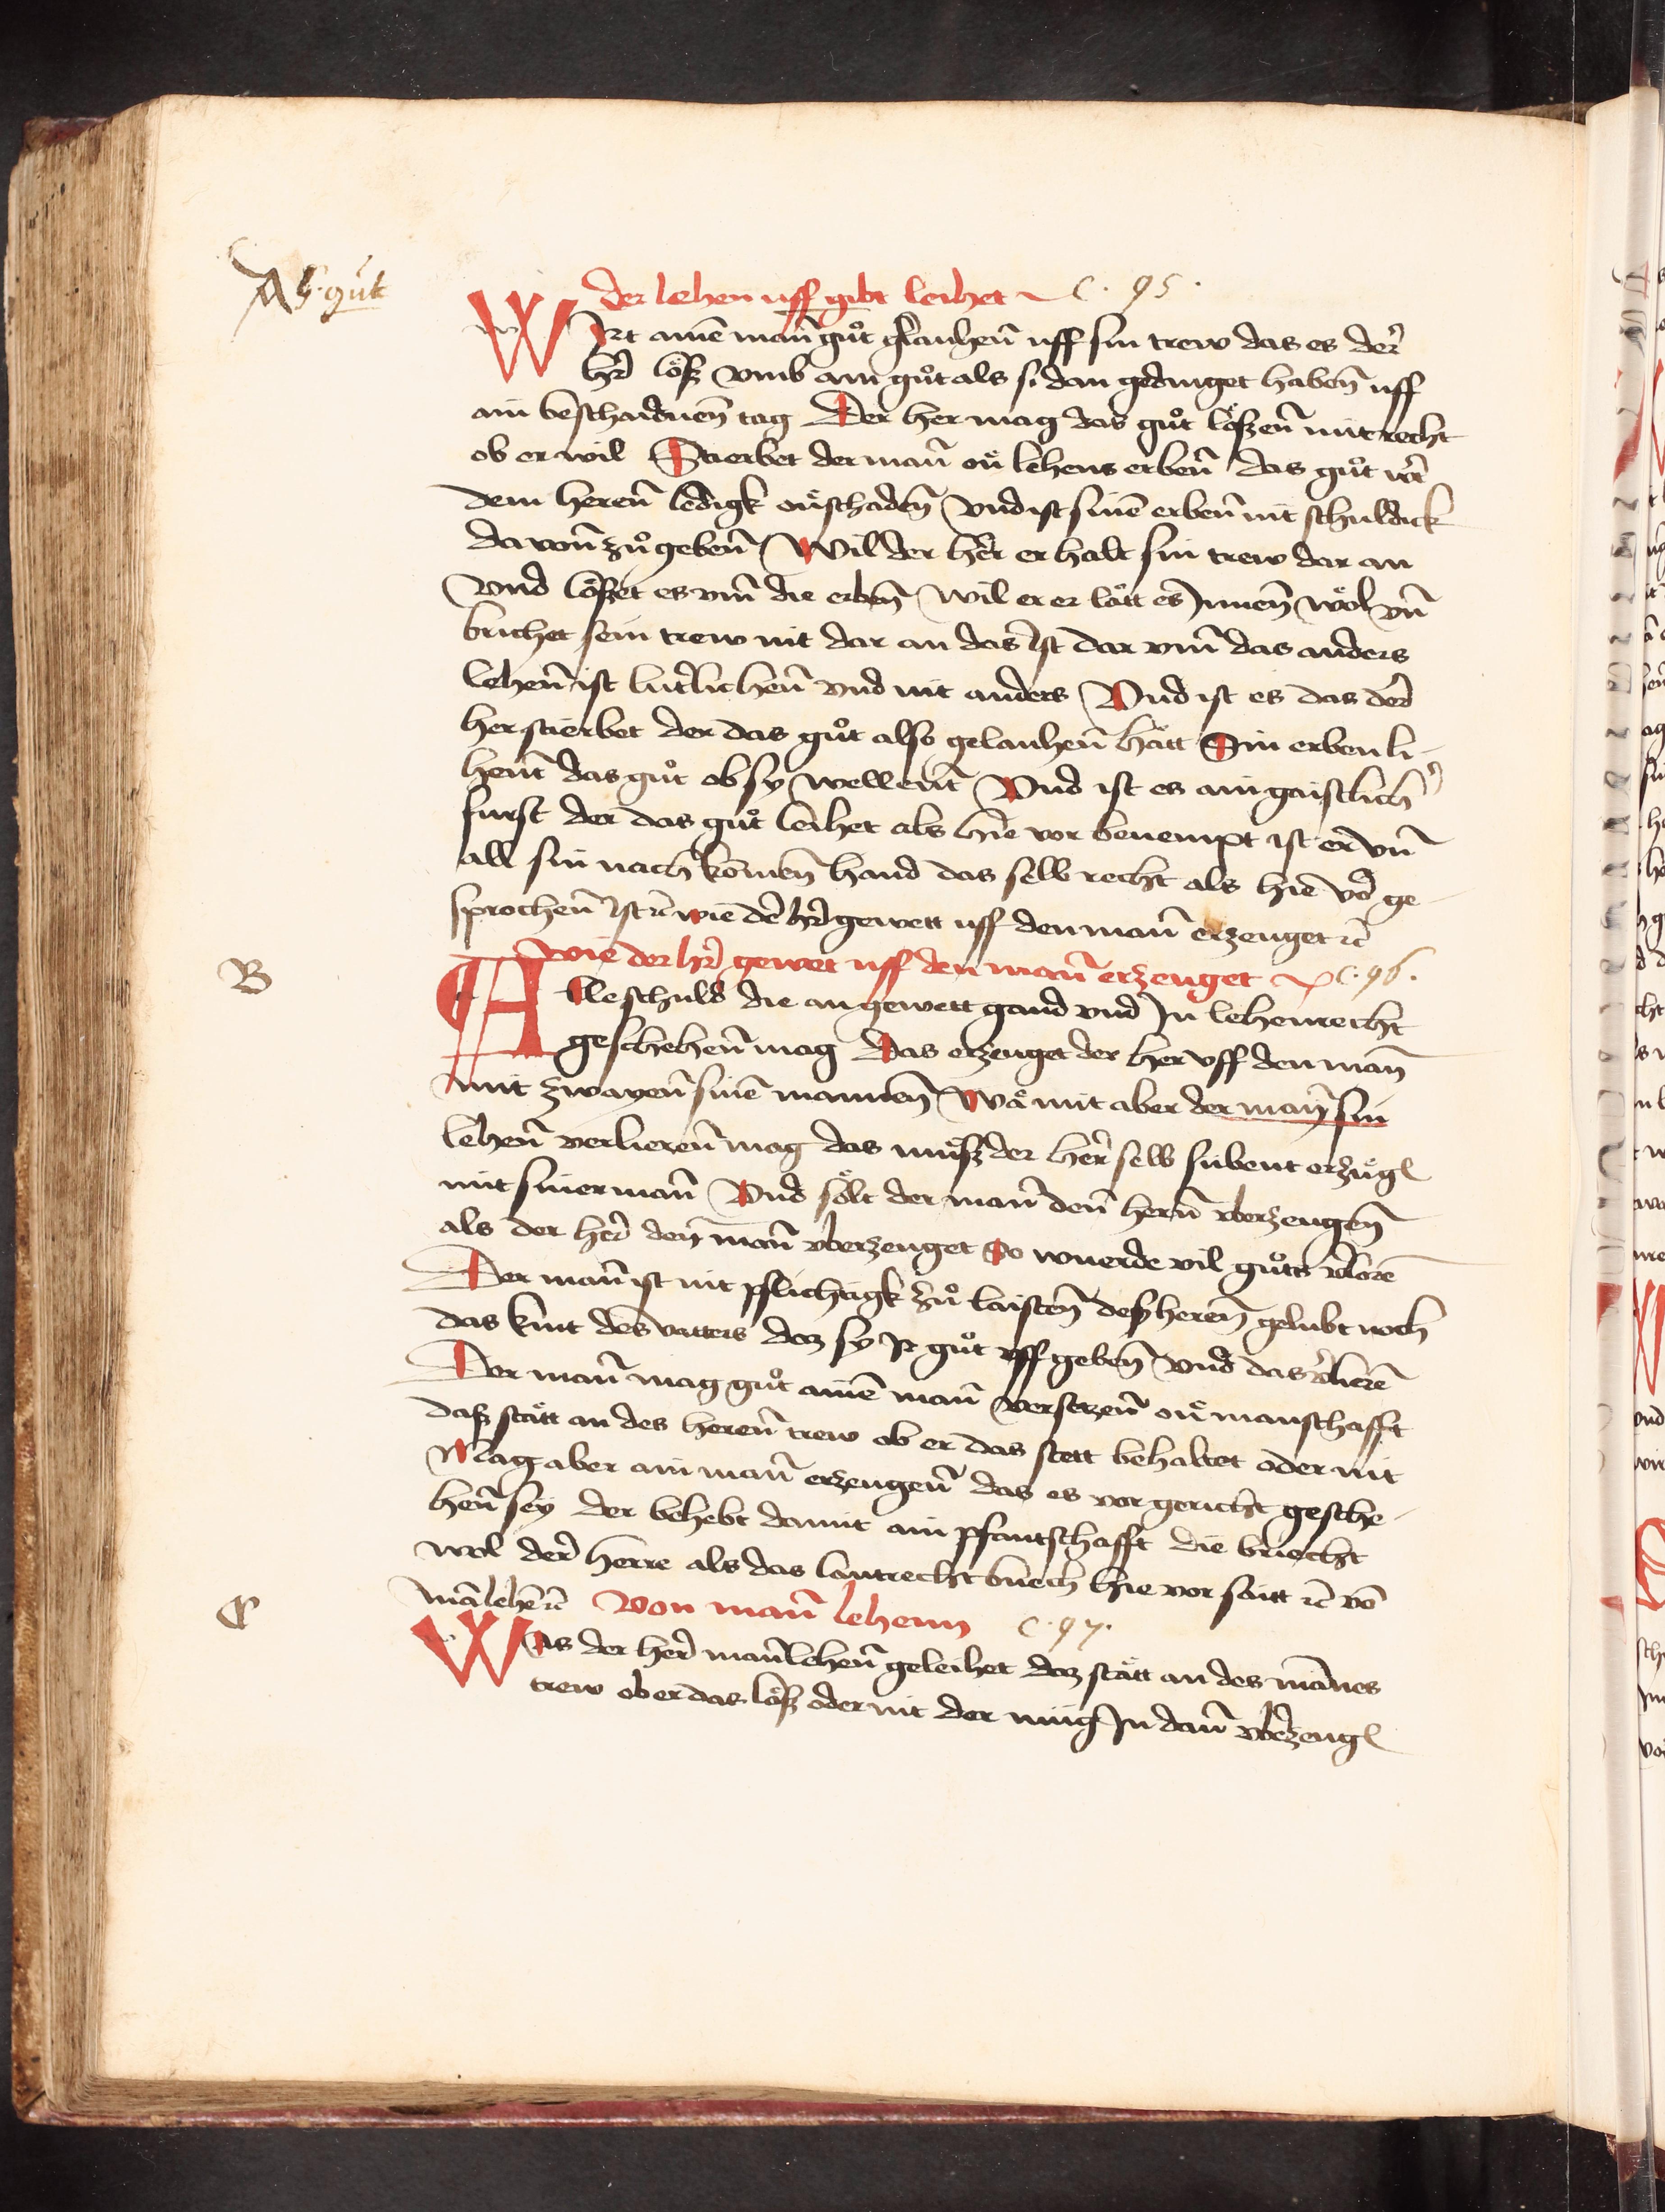 Ab. gut
der lehen uff gibt leihet c. 95.
WIrt ainē man̄ guͦt glauhen̄ uff sin trew das es der
hr̄ loͤsz vmb ain guͦt als si dan gedinget haben̄ uff
ain beschaidnen̄ tag Der her mag das guͦt loͤszen̄ mit recht
ob er wil Stierbet der man̄ on lehens erben̄ das guͦt ist
dem heren̄ ledigk on schaden̄ Vnd ist sinē erben̄ nit schuldick
da von̄ zuͦ geben̄ Wil der her er halt sin trew dar an
Vnd loͤszet es vm̄ die erben̄ wil er er laͤtt es Jnnen̄ wol vn̄
brichet sein trew nit dar an das ist dar vm̄ das anders
lehen̄ ist luterlichen̄ vnd nit anders Vnd ist es das der
her stierbet der das guͦt also gelauhen̄ hatt Sin erben li-
hent das guͦt ob sy wellent Vnd ist es ain gaistlich
furst der das guͦt leihet als hie vor benempt ist er vn̄
all sin nach komen̄ hand das selb recht als hie vor ge-
sprochen̄ ist wie der hr̄ gewett uff den man̄ erzeuget ꝛc
wie der hr̄ gewet uff den man̄ erzeuget c. 96.
B
Alle schuld die an gewett gand vnd Jn lehenrecht
geschehen̄ mag Das erzeuget der her vff den man̄
mit zwayen̄ sinē mannen̄ Wa mit aber der man̄ sin
lehen̄ verlieren̄ mag das muͤsz der her selb sübent erzüg
mit siner man̄ Vnd soͤlt der man̄ den̄ heren̄ vberzeugen̄
als der her den̄ man̄ vberzeuget So wuerde vil guͦtts vlorē
Der man̄ ist nit pflichtigk zuͦ laisten̄ desz heren̄ gelubt noch
das kint des vatters daz sy Jr guͦt vff geben̄ vnd das v̄lierē
Der man̄ mag guͦt ainē man̄ versetzen̄ on manschafft
dasz staͤtt an des heren̄ trew ob er das stett behaltet oder nit
Mag aber ain man̄ erzeugen̄ das es vor gericht gesche-
hen̄ sey der behebt damit ain pfantschafft die bricht
wol der herre als das lantrecht buech hie vor saitt ꝛc vō
mālehē ꝛc Von man̄ lehenn c. 97.
C
Was der her man̄lehen̄ geleihet daz staͤtt an des mānes
trew ob er das loͤsz oder nit der müg Jn dan̄ vberzeug